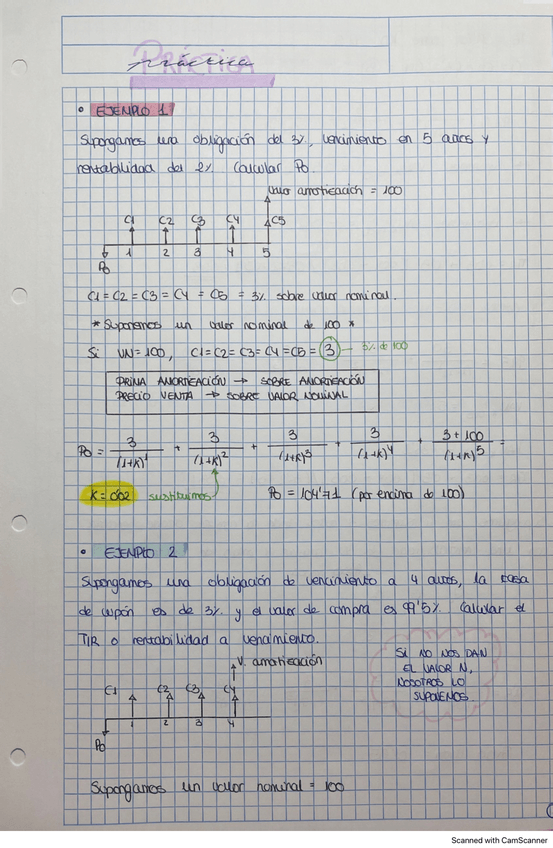 PRÁCTICA
práctica
• EJEMPLO 1
Supongamos una obligación del 3%, vencimiento en 5 años y
rentabilidad del 2%. Calcular P0.
Valor amortización = 100
C1 C2 C3 C4 C5
1 2 3 4 5
P0
C1 = C2 = C3 = C4 = C5 = 3% sobre valor nominal.
* Suponemos un valor nominal de 100 *
Si VN = 100, C1 = C2 = C3 = C4 = C5 = 3 — 3% de 100
PRIMA AMORTIZACIÓN → SOBRE AMORTIZACIÓN
PRECIO VENTA → SOBRE VALOR NOMINAL
P0 = 3/(1+K)^1 + 3/(1+K)^2 + 3/(1+K)^3 + 3/(1+K)^4 + 3+100/(1+K)^5 =
K = 0'02 sustituimos P0 = 104'71 (por encima de 100)
• EJEMPLO 2
Supongamos una obligación de vencimiento a 4 años, la tasa
de cupón es de 3% y el valor de compra es 99'5%. Calcular el
TIR o rentabilidad a vencimiento.
SI NO NOS DAN
EL VALOR N,
NOSOTROS LO
SUPONEMOS.
V. amortización
C1 C2 C3 C4
1 2 3 4
P0
Supongamos un valor nominal = 100
Scanned with CamScanner